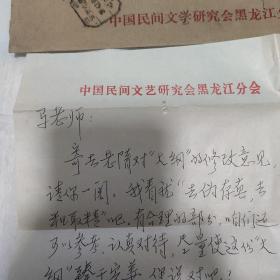 中国民间文学研究会黑龙江分
中国民间文艺研究会黑龙江分会
老师：
寄去老隋对“大纲”的修改意见，
请你一阅。我看按“去伪存真，去
粗取精”吧，有合理的部分，咱们还
可以参考、认真对待，尽量使这份“大
纲”臻于完善，你说对吧？